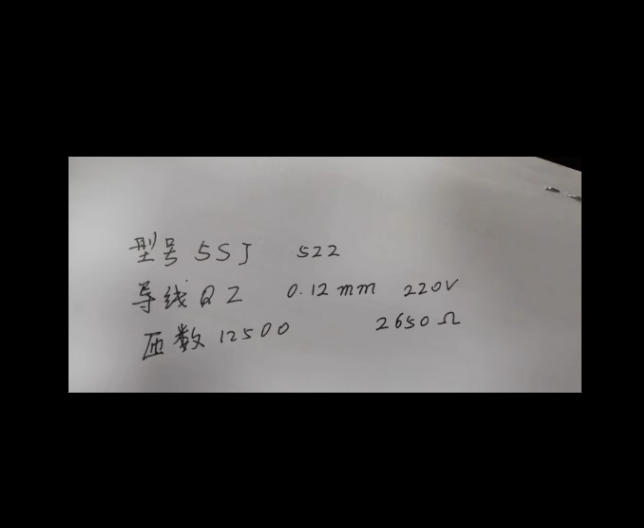 型号 5SJ 522
导线 QZ 0.12mm 220V
匝数 12500 2650Ω